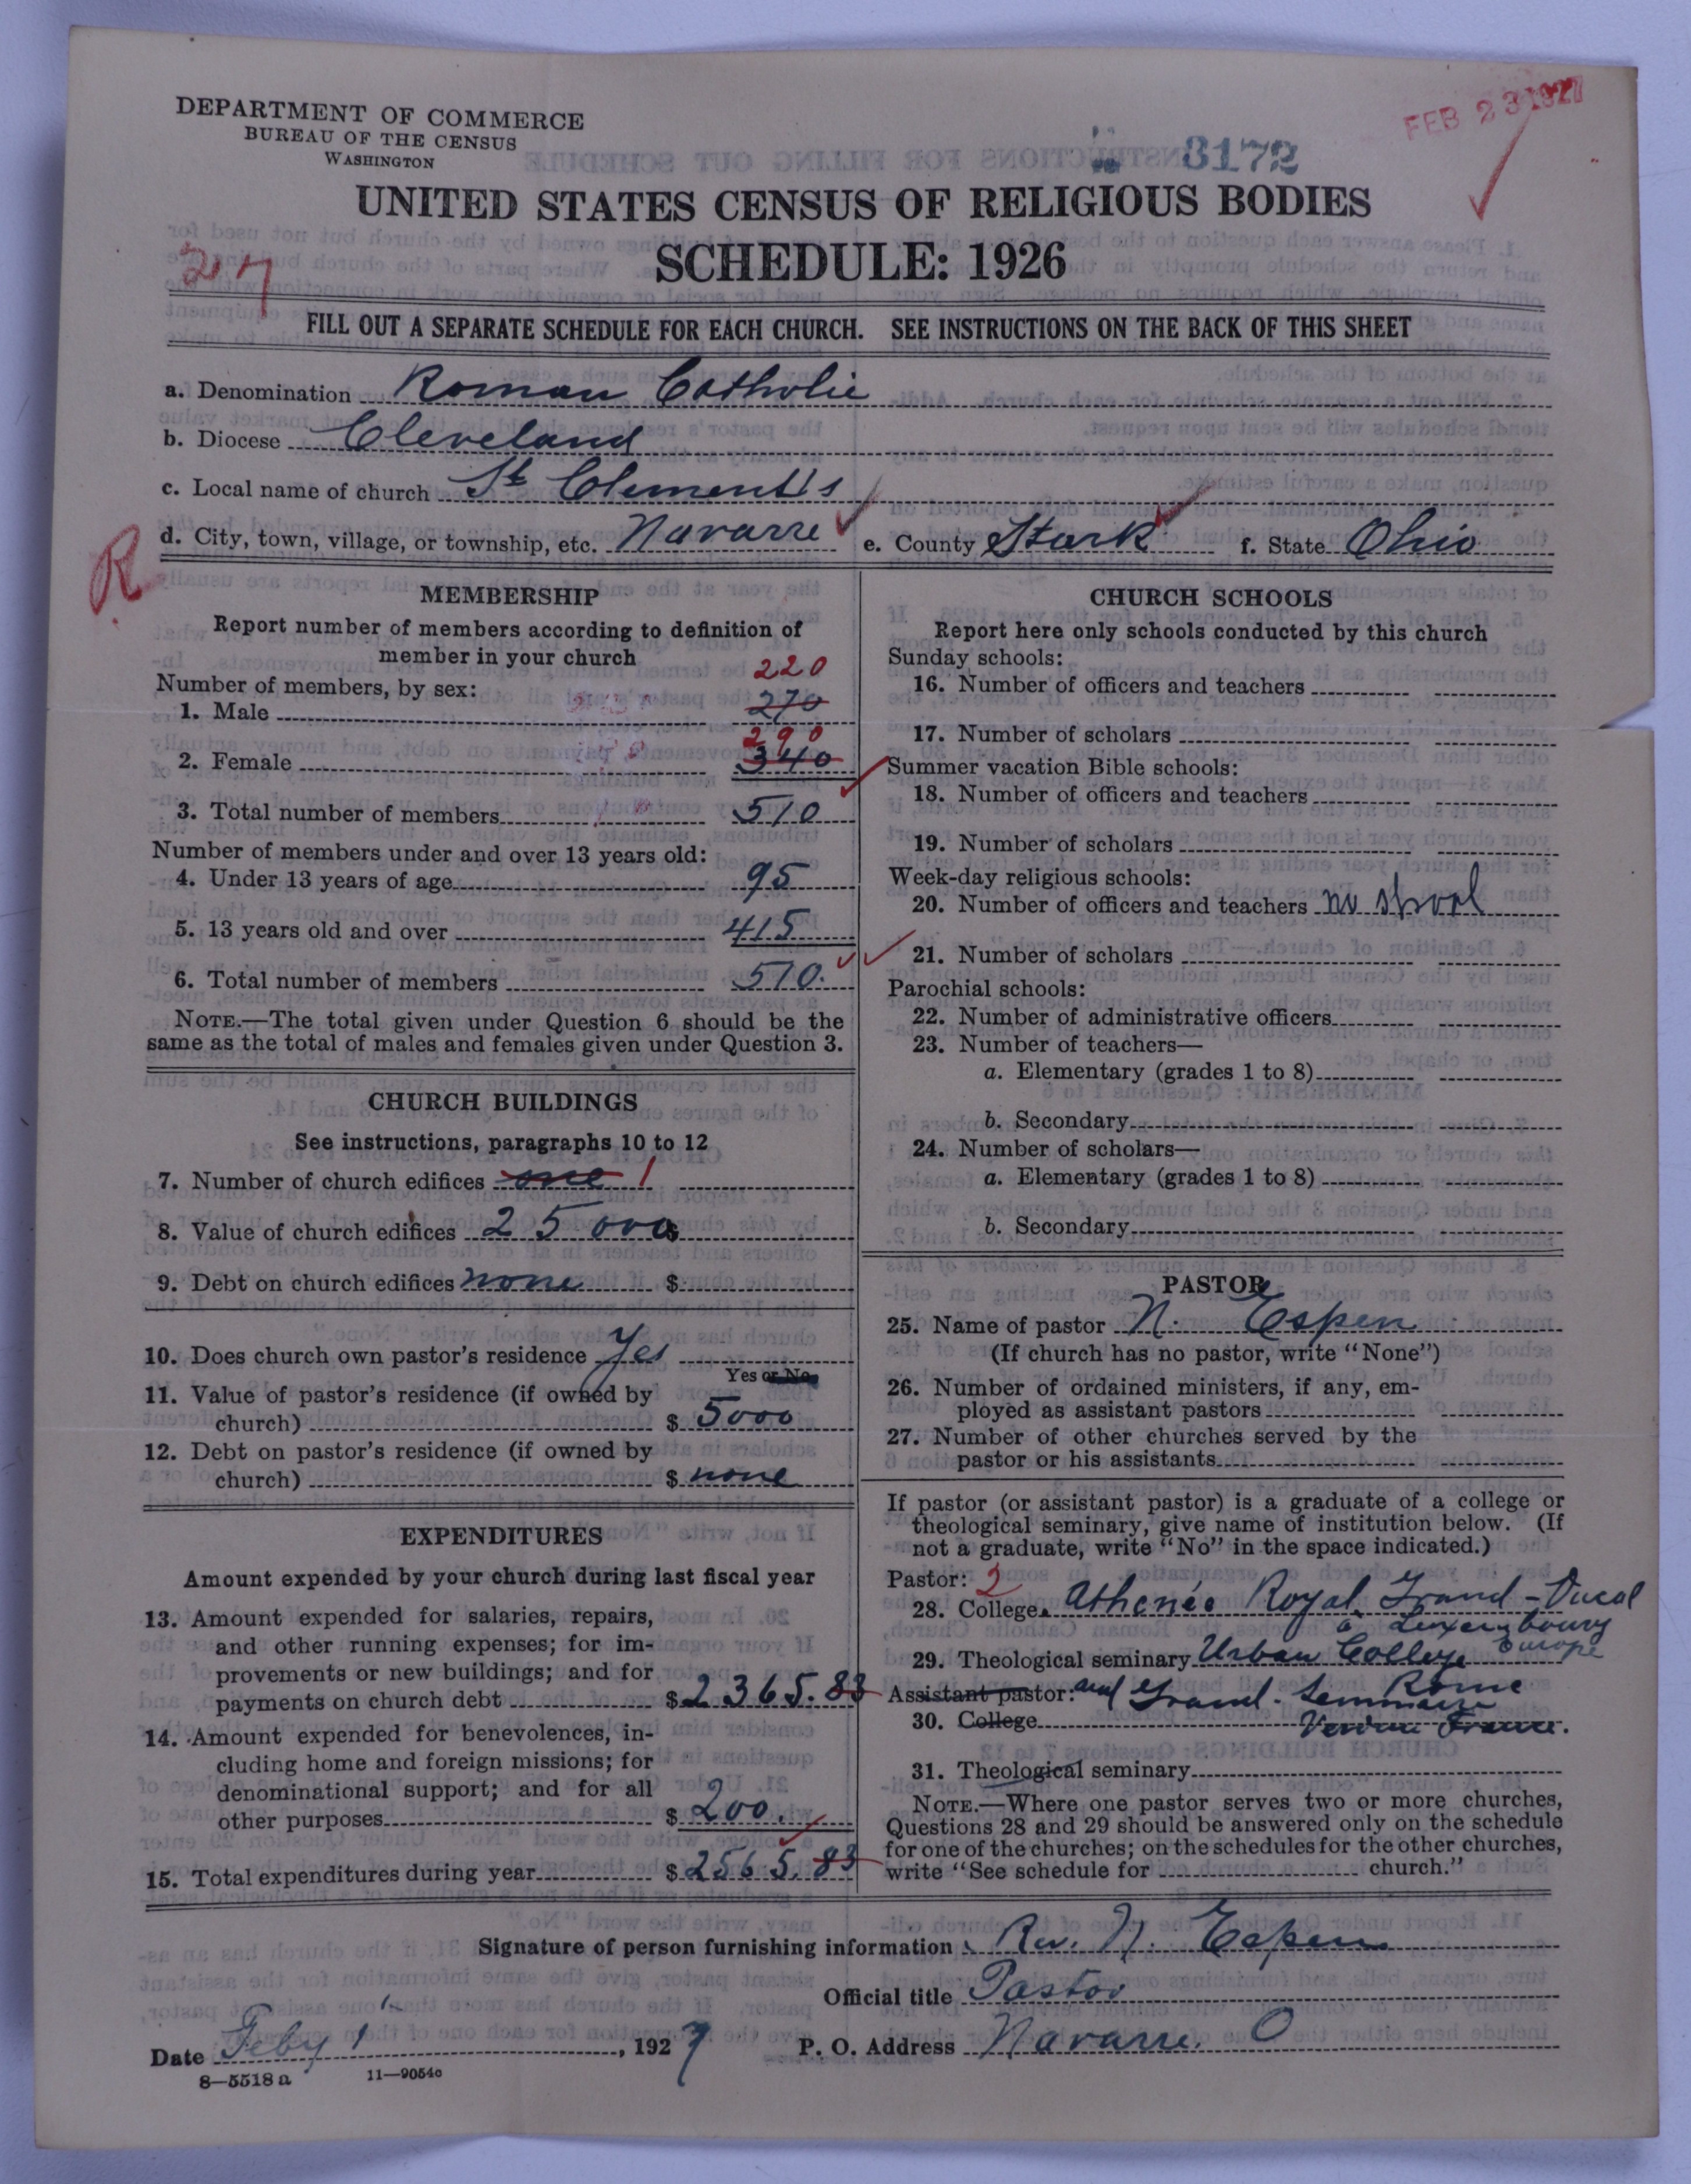 DEPARTMENT OF COMMERCE
BUREAU OF THE CENSUS
WASHINGTON
FEB 23 1927
3172
UNITED STATES CENSUS OF RELIGIOUS BODIES
SCHEDULE: 1926
217
FILL OUT A SEPARATE SCHEDULE FOR EACH CHURCH. SEE INSTRUCTIONS ON THE BACK OF THIS SHEET
a. Denomination Roman Catholic
b. Diocese Cleveland
c. Local name of church St Clement's
d. City, town, village, or township, etc. Navarre e. County Stark f. State Ohio
R
MEMBERSHIP
Report number of members according to definition of
member in your church
220
Number of members, by sex:
1. Male 270
290
2. Female 340
3. Total number of members 510
Number of members under and over 13 years old:
4. Under 13 years of age 95
5. 13 years old and over 415
6. Total number of members 510.
NOTE.—The total given under Question 6 should be the
same as the total of males and females given under Question 3.
CHURCH BUILDINGS
See instructions, paragraphs 10 to 12
7. Number of church edifices one 1
8. Value of church edifices 25 000 $
9. Debt on church edifices none $
10. Does church own pastor's residence yes
Yes or No
11. Value of pastor's residence (if owned by
church) $ 5000
12. Debt on pastor's residence (if owned by
church) $ none
EXPENDITURES
Amount expended by your church during last fiscal year
13. Amount expended for salaries, repairs,
and other running expenses; for im-
provements or new buildings; and for
payments on church debt $ 2365.83
14. Amount expended for benevolences, in-
cluding home and foreign missions; for
denominational support; and for all
other purposes $ 200.
15. Total expenditures during year $ 2565.83
CHURCH SCHOOLS
Report here only schools conducted by this church
Sunday schools:
16. Number of officers and teachers
17. Number of scholars
Summer vacation Bible schools:
18. Number of officers and teachers
19. Number of scholars
Week-day religious schools:
20. Number of officers and teachers no shool
21. Number of scholars
Parochial schools:
22. Number of administrative officers
23. Number of teachers—
a. Elementary (grades 1 to 8)
b. Secondary
24. Number of scholars—
a. Elementary (grades 1 to 8)
b. Secondary
PASTOR
25. Name of pastor N. Espen
(If church has no pastor, write "None")
26. Number of ordained ministers, if any, em-
ployed as assistant pastors
27. Number of other churches served by the
pastor or his assistants
If pastor (or assistant pastor) is a graduate of a college or
theological seminary, give name of institution below. (If
not a graduate, write "No" in the space indicated.)
Pastor: 2
28. College Athenée Royal Grand-Ducal
a Luxembourg
Europe
29. Theological seminary Urban College
Rome
Assistant pastor: and Grand-Seminaire
30. College Verdun France.
31. Theological seminary
NOTE.—Where one pastor serves two or more churches,
Questions 28 and 29 should be answered only on the schedule
for one of the churches; on the schedules for the other churches,
write "See schedule for church."
Signature of person furnishing information Rev. N. Espen
Official title Pastor
Date Feby 1, 1927 P. O. Address Navarre, O
8—5518a 11—9054c